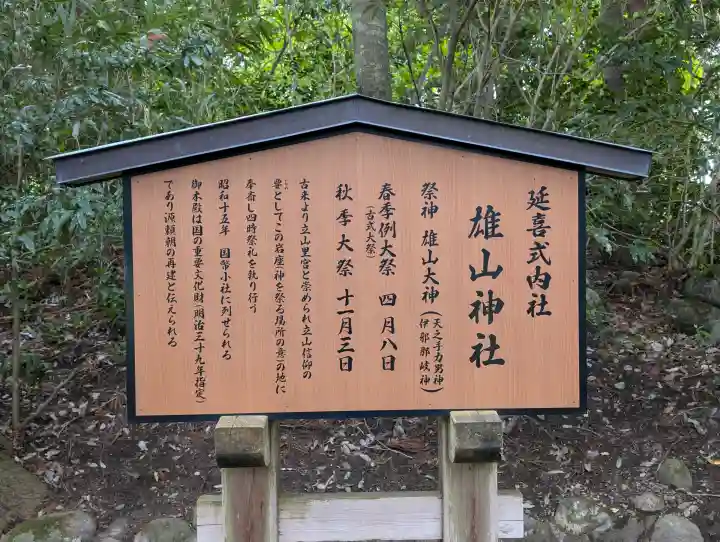 延喜式内社
雄山神社
祭神 雄山大神(天之手力男神
伊邪那岐神)
春季例大祭 四月八日
(古式大祭)
秋季大祭 十一月三日
古来より立山里宮と崇められ立山信仰の
要としてこの岩座神を祭る場所の意の地に
しゅ
奉斎し四時祭礼を執り行う
昭和十五年 国幣小社に列せられる
御本殿は国の重要文化財(明治三十九年指定)
であり源頼朝の再建と伝えられる